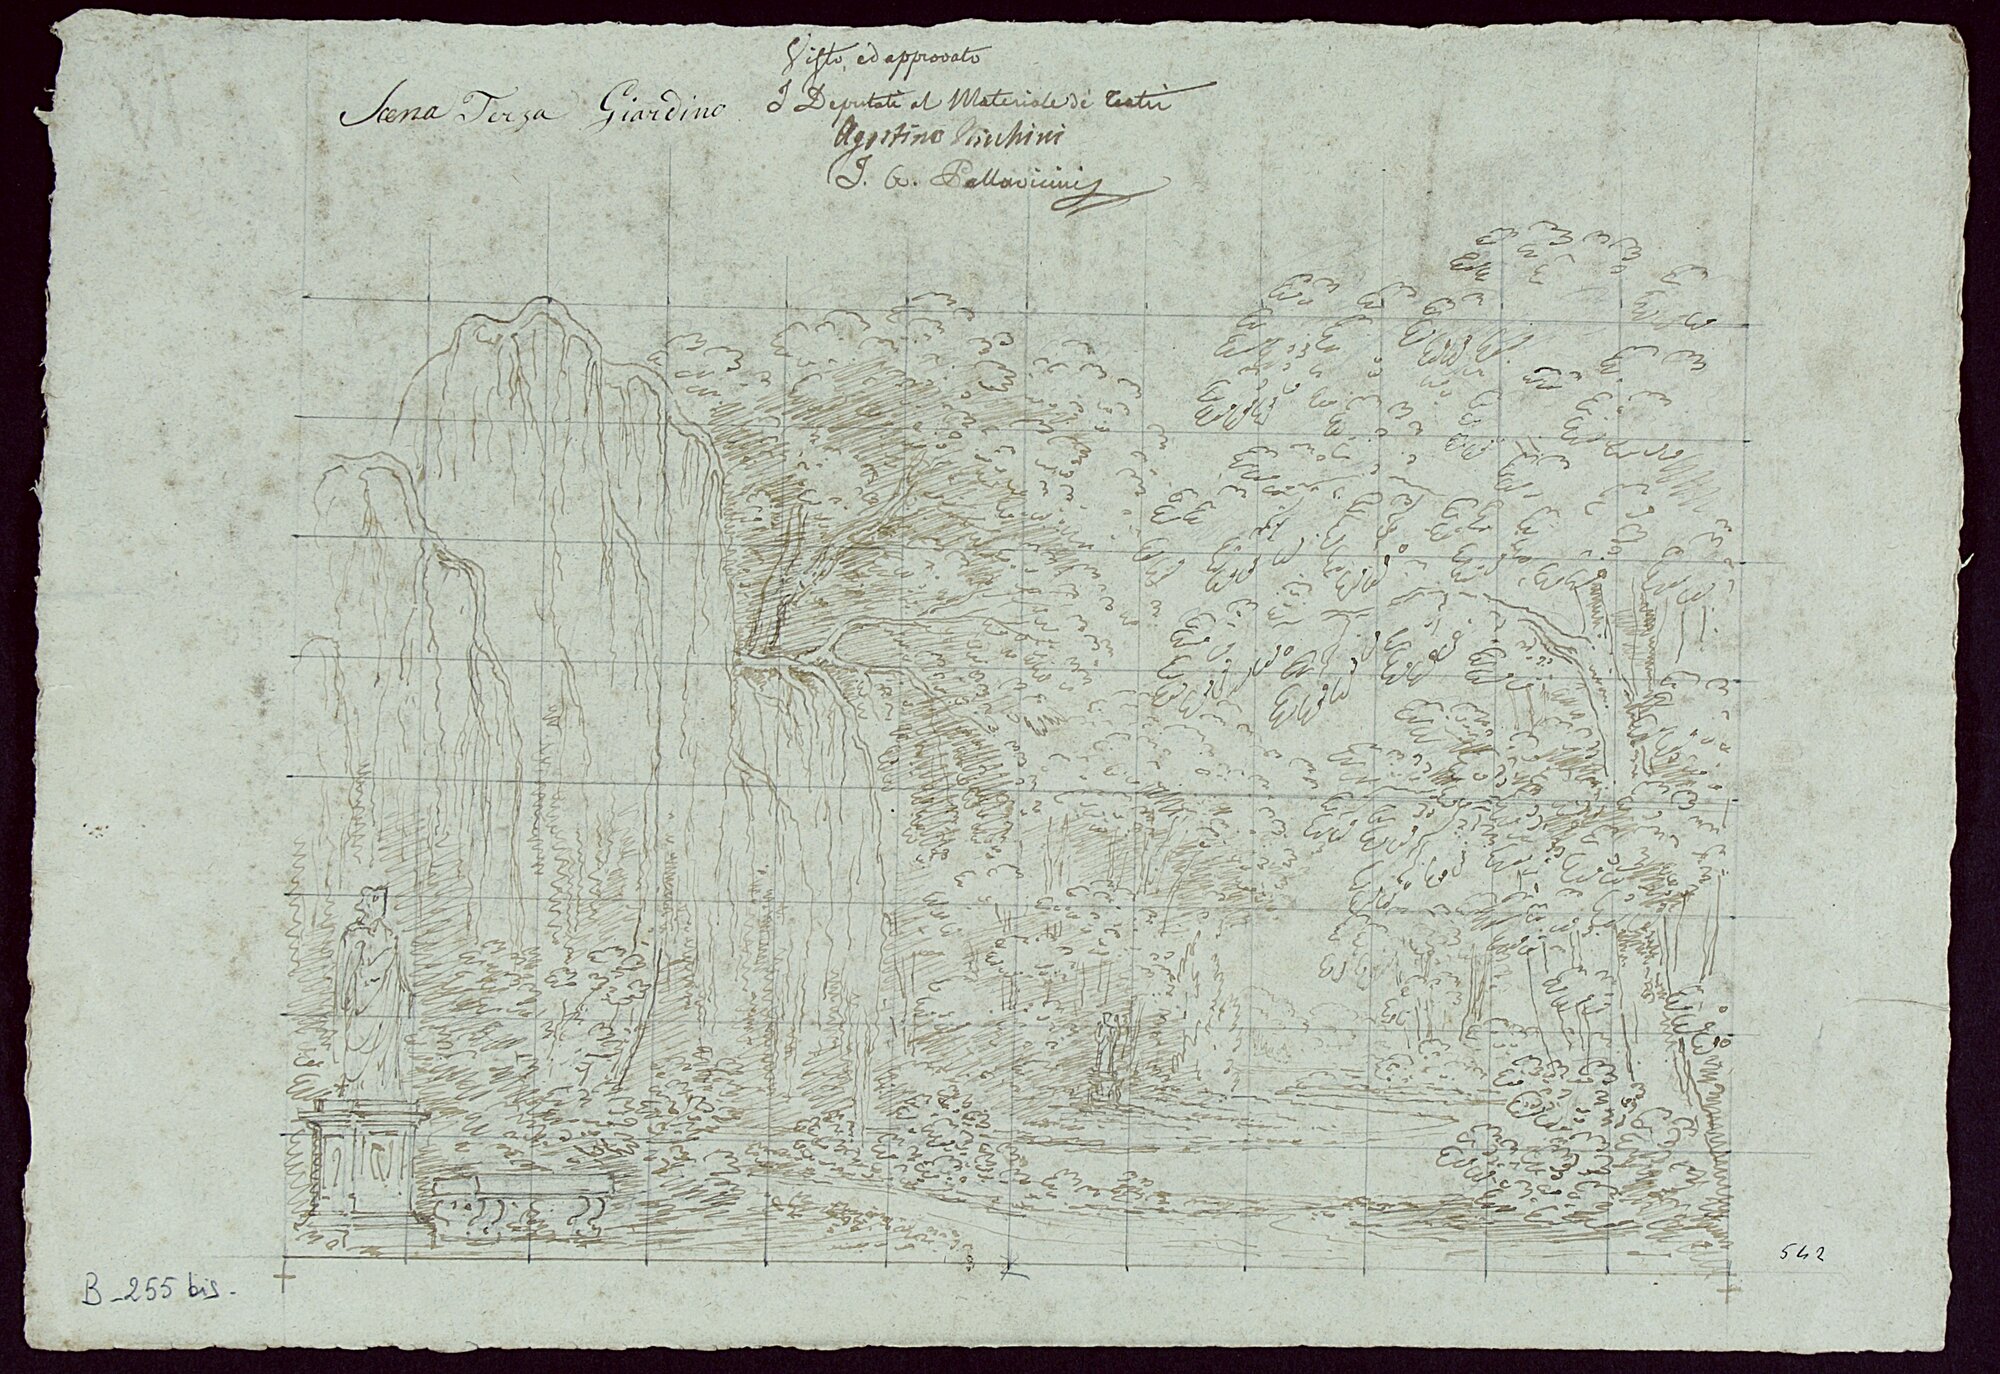 Scena Terza Giardino
Visto, ed approvato
I Deputati al Materiale de' Teatri
Agostino
I. G. Pallavicini
B_255 bis.
542